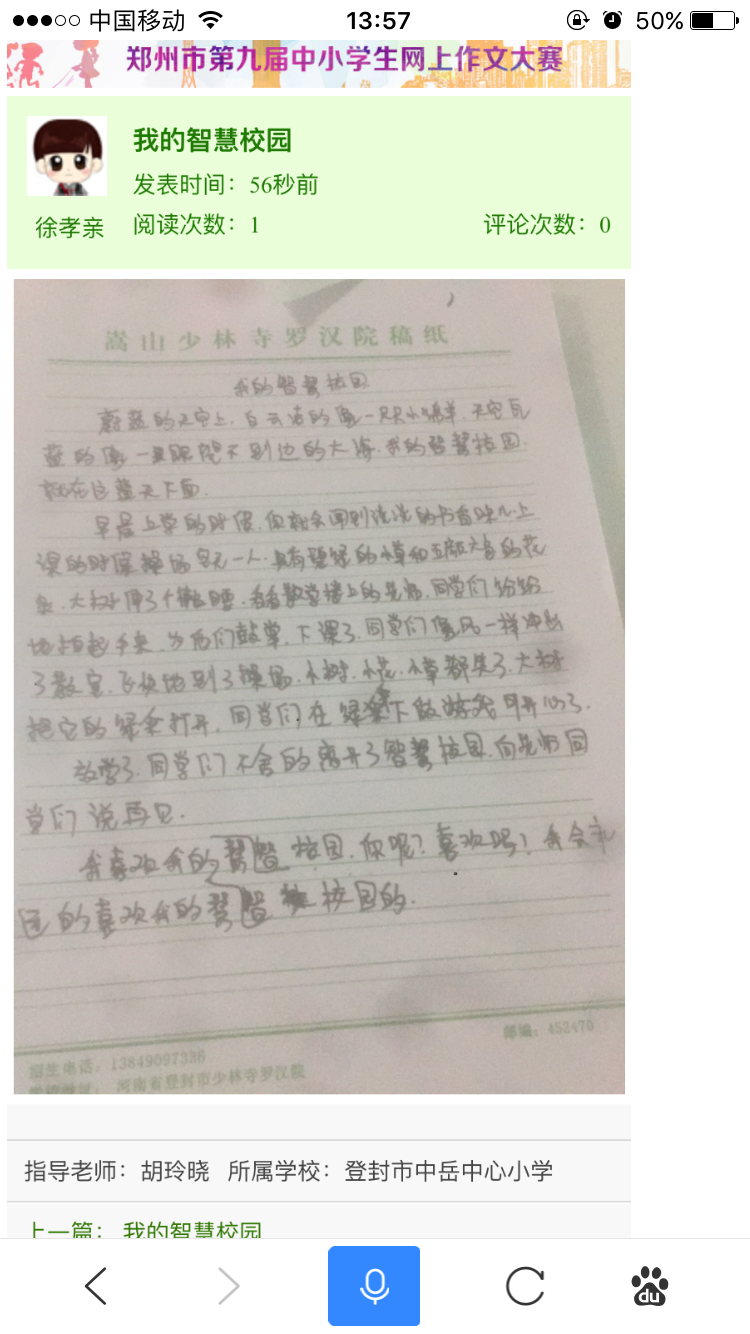 中国移动
13:57
50%
郑州市第九届中小学生网上作文大赛
我的智慧校园
发表时间：56秒前
徐孝亲
阅读次数：1
评论次数：0
嵩山少林寺罗汉院稿纸
我的智慧校园
蔚蓝的天空上，白云洁的像一只只小绵羊，天空瓦
蓝的像一望无不到边的大海，我的智慧校园，
就在这蓝天下面。
早晨上学的时候，你就会闻到淡淡的书香味儿上
课的时候操场空无一人，只有碧绿的小草和五颜六色的花
朵，大树伸了个懒腰，看看教学楼上的老师，同学们纷纷
地拍起手来，为他们鼓掌，下课了，同学们像风一样冲出
了教室，飞快地到了操场，小树，小花，小草都笑了，大树
把它的绿伞打开，同学们在绿伞下做游戏可开心了。
放学了，同学们不舍的离开了智慧校园，向老师同
学们说再见。
我喜欢我的慧智校园，你呢？喜欢吗！我会永
远的喜欢我的慧智校园的。
邮编：452470
招生电话：13849097336
河南省登封市少林寺罗汉院
指导老师：胡玲晓 所属学校：登封市中岳中心小学
上一篇：我的智慧校园
du